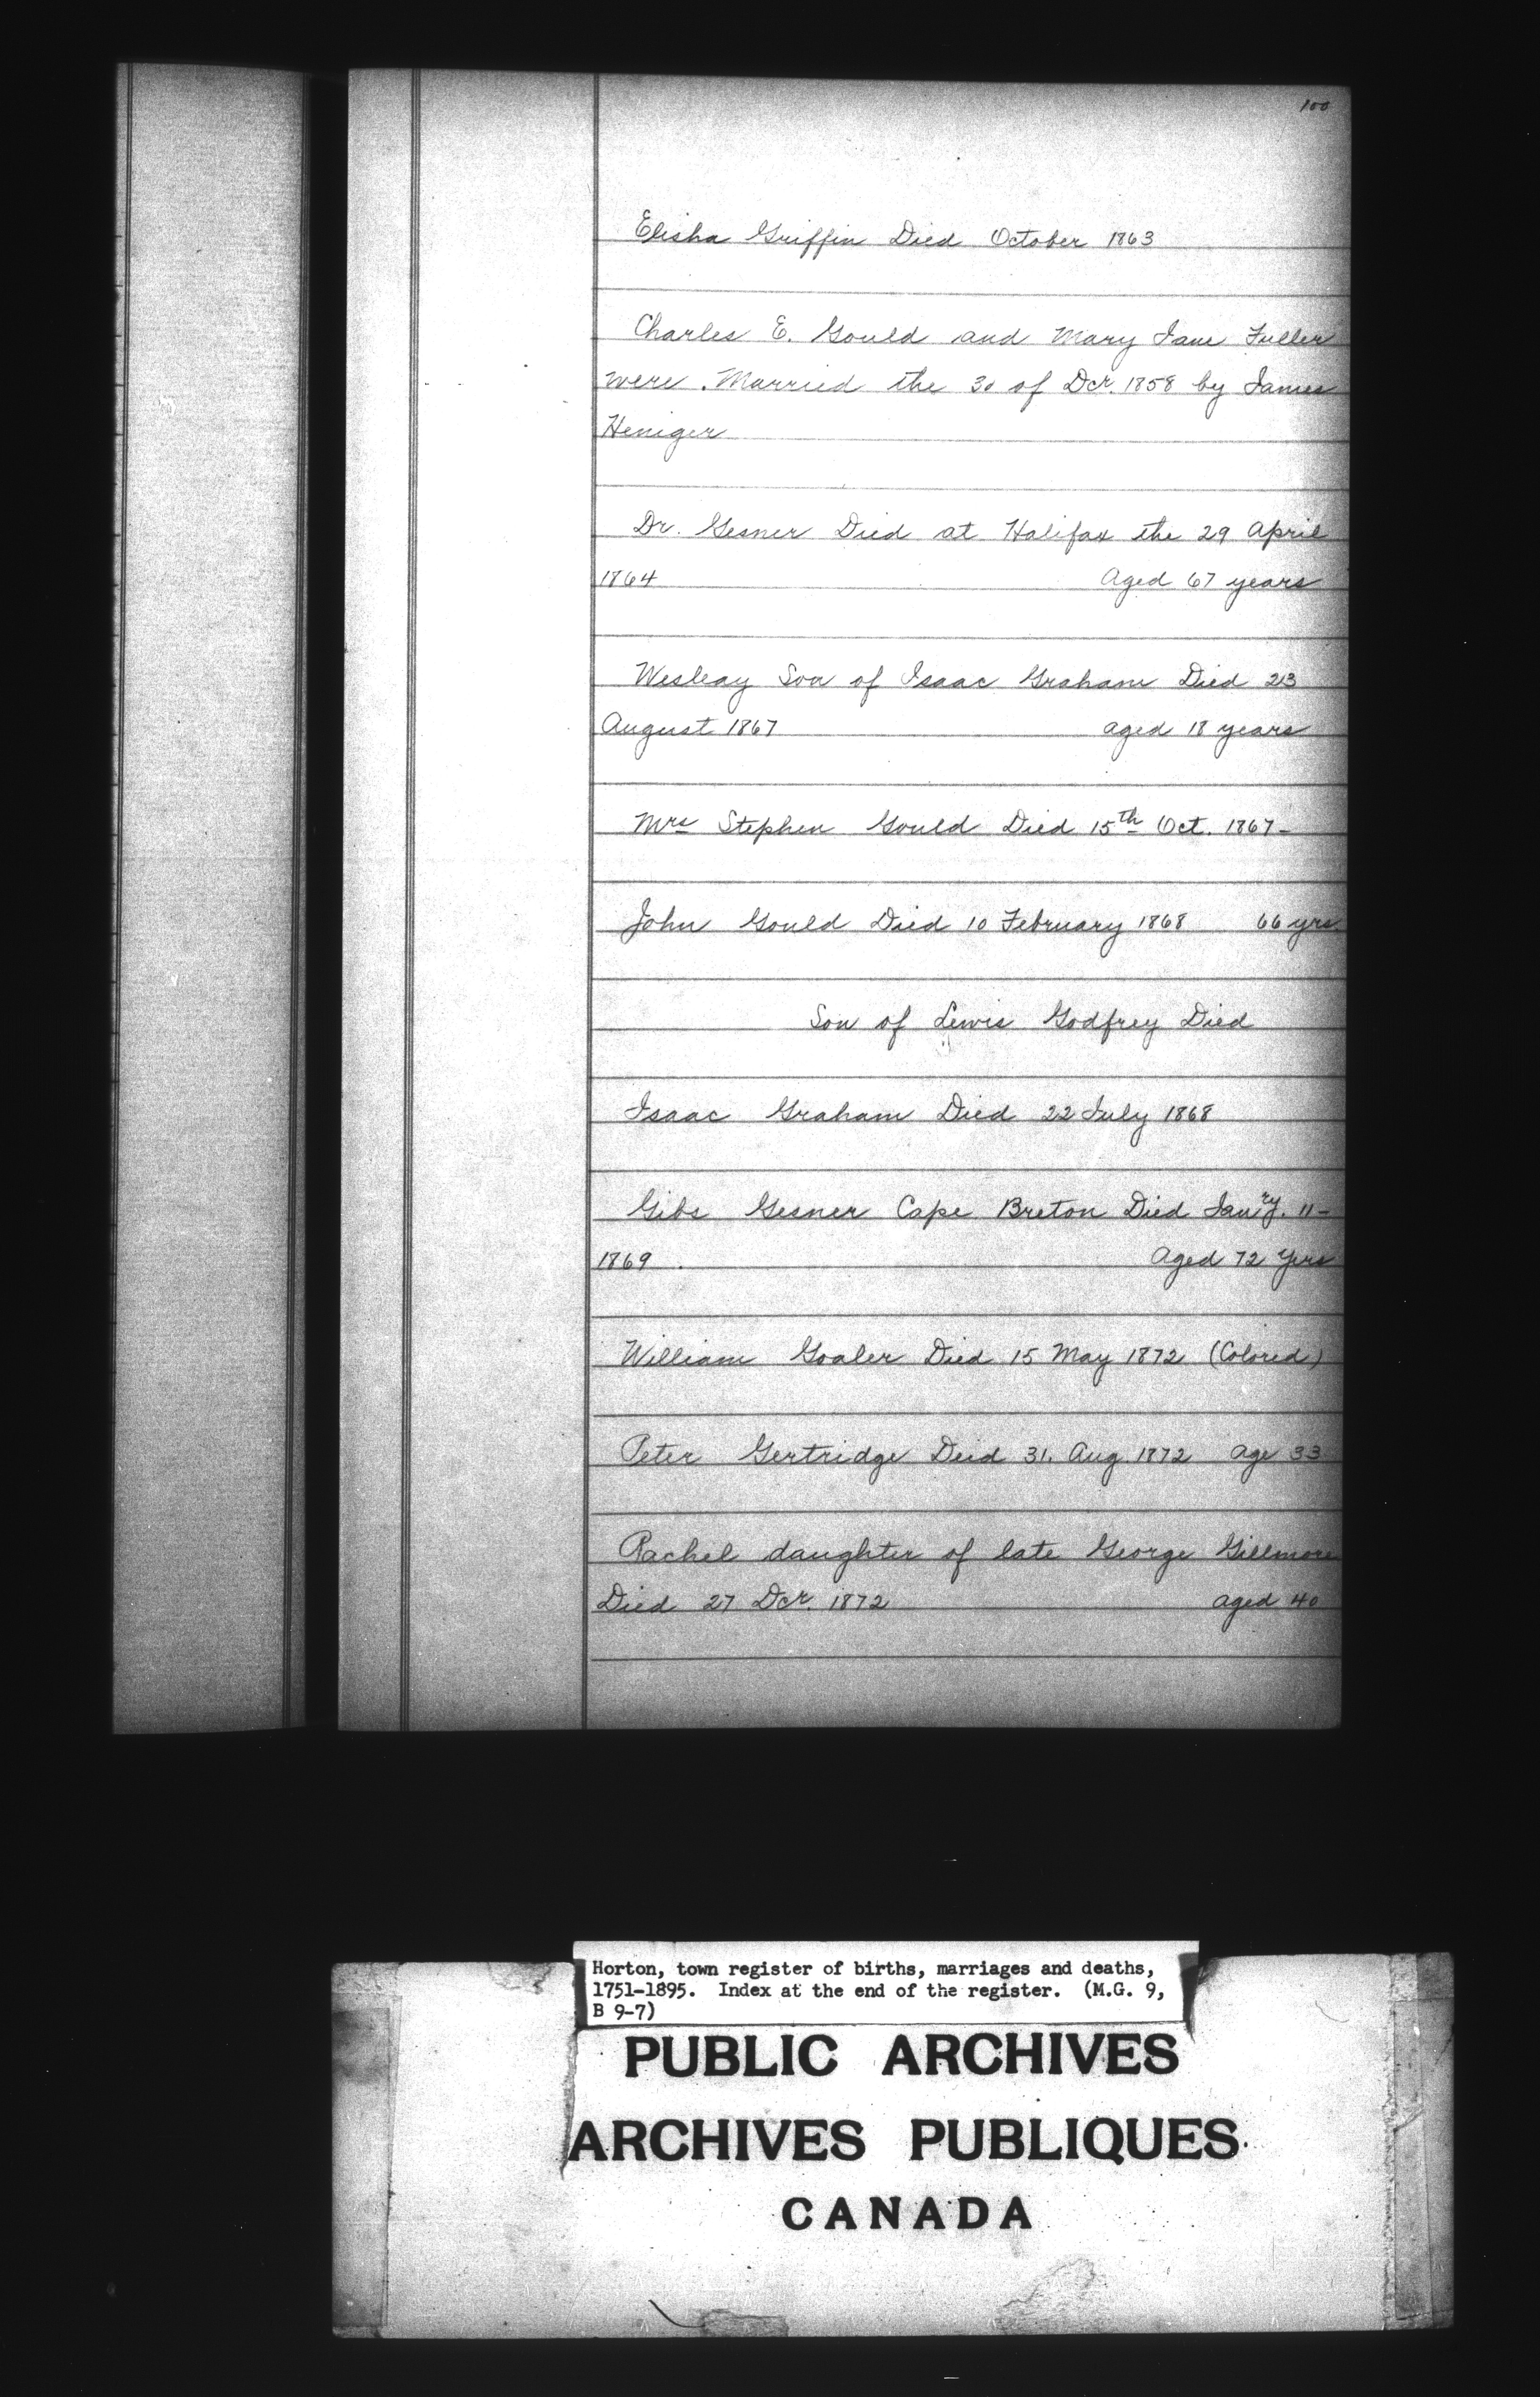 100
Elisha Griffin Died October 1863
Charles E. Gould and Mary Jane Fuller
were Married the 30 of Dcr. 1858 by James
Heniger
Dr. Gesner Died at Halifax the 29 April
1864 Aged 67 years
Wesleay Son of Isaac Graham Died 23
August 1867 aged 18 years
Mrs Stephen Gould Died 15th Oct. 1867-
John Gould Died 10 February 1868 66 yrs.
Son of Lewis Godfrey Died
Isaac Graham Died 22 July 1868
Gibs Gesner Cape Breton Died Janry. 11-
1869. Aged 72 Yers
William Goaler Died 15 May 1872 (Colored)
Peter Gertridge Deid 31. Aug. 1872 age 33
Rachel daughter of late George Gillmore
Died 27 Dcr. 1872 aged 40
Horton, town register of births, marriages and deaths,
1751-1895. Index at the end of the register. (M.G. 9,
B 9-7)
PUBLIC ARCHIVES
ARCHIVES PUBLIQUES
CANADA